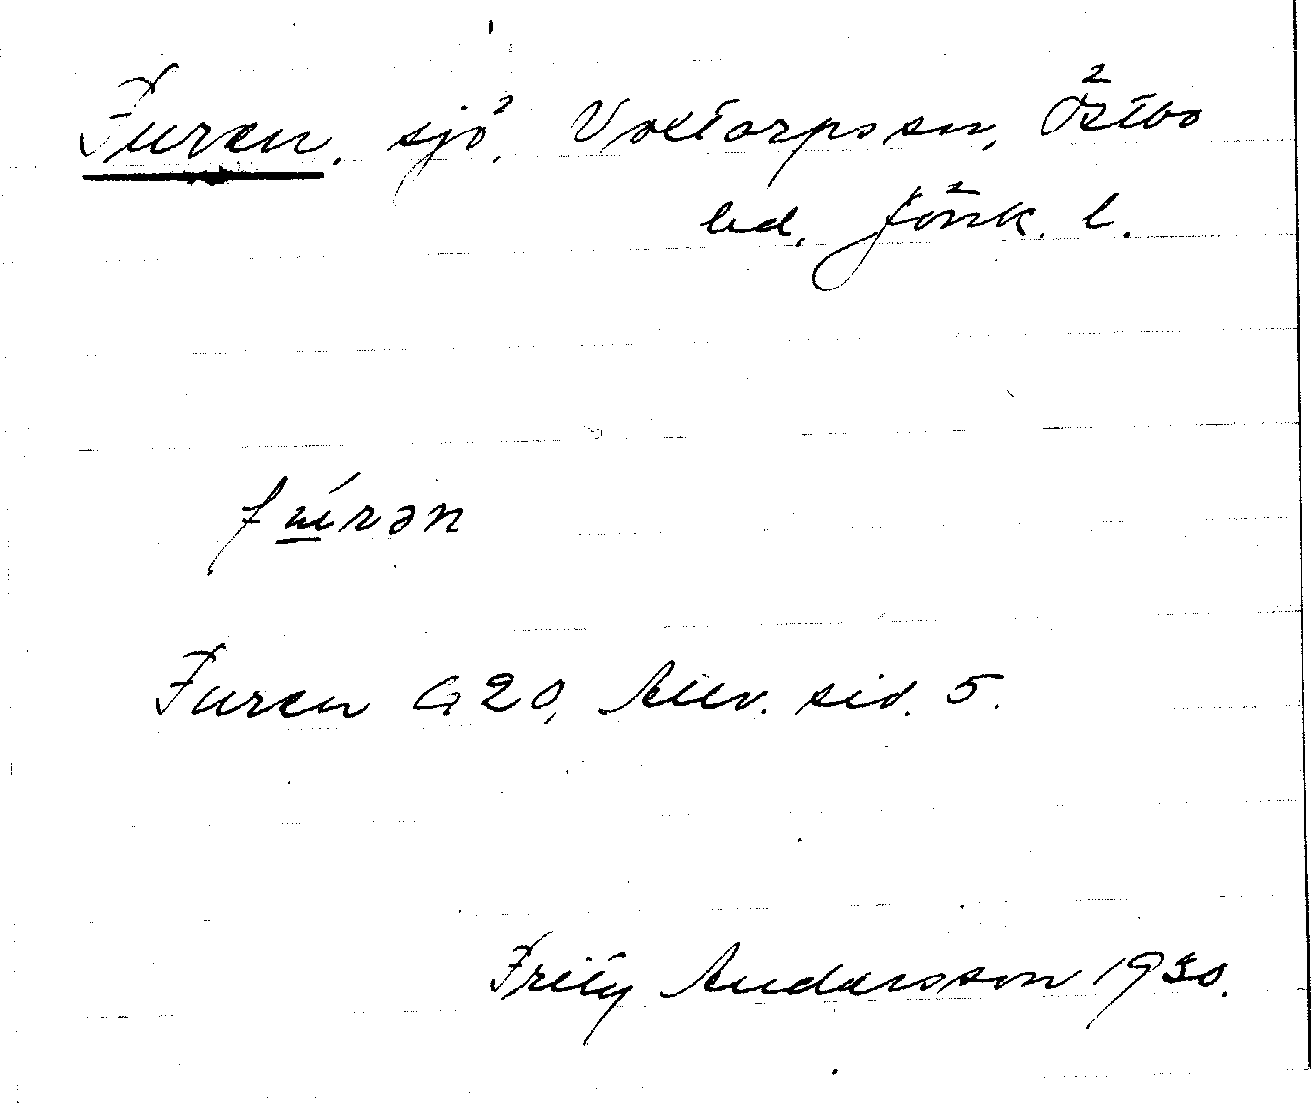 Furen. sjö, Voxtorps sn, Östbo
hd, Jönk. l.
fúrən
Furen G 20, Allv. sid. 5.
Fritz Andersson 1930.